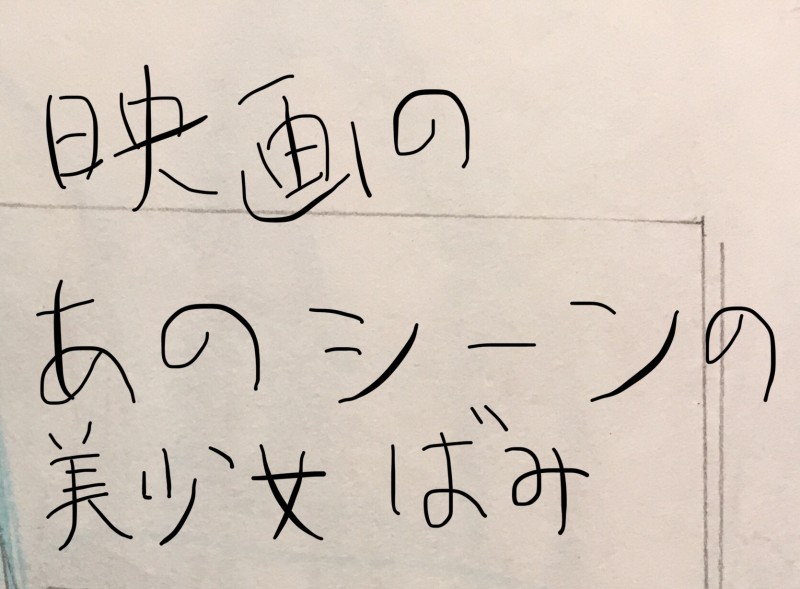 映画の
あのシーンの
美少女ばみ